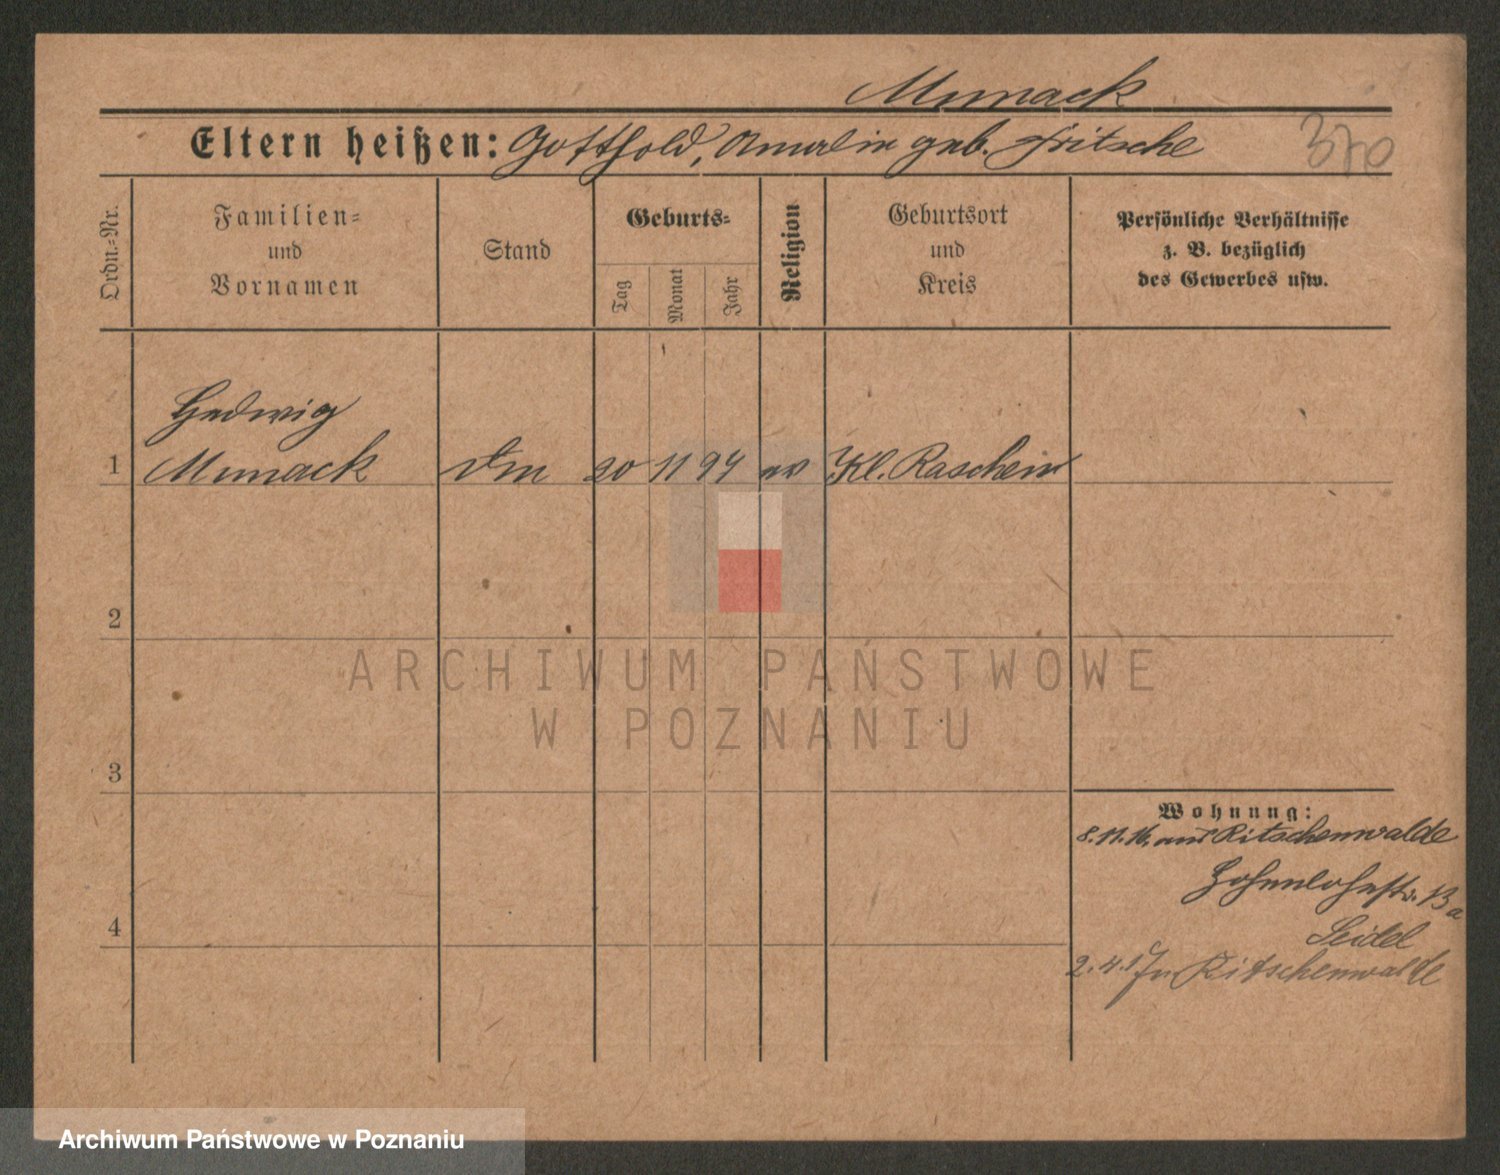 Munack
Eltern heißen: Gotthold, Amalie geb. Fritsche
Ordn.=Nr.
Familien=
und
Vornamen
Stand
Geburts=
Tag
Monat
Jahr
Religion
Geburtsort
und
Kreis
Persönliche Verhältnisse
z. B. bezüglich
des Gewerbes usw.
Hedwig
1 Munack 20 11 94 ev Kl. Raschein
2
ARCHIWUM PAŃSTWOWE
W POZNANIU
3
Wohnung:
8.11.16. aus Ritschenwalde
Hohenlohestr. 13a
Seidel
4
2.4.17 n Ritschenwalde
Archiwum Państwowe w Poznaniu